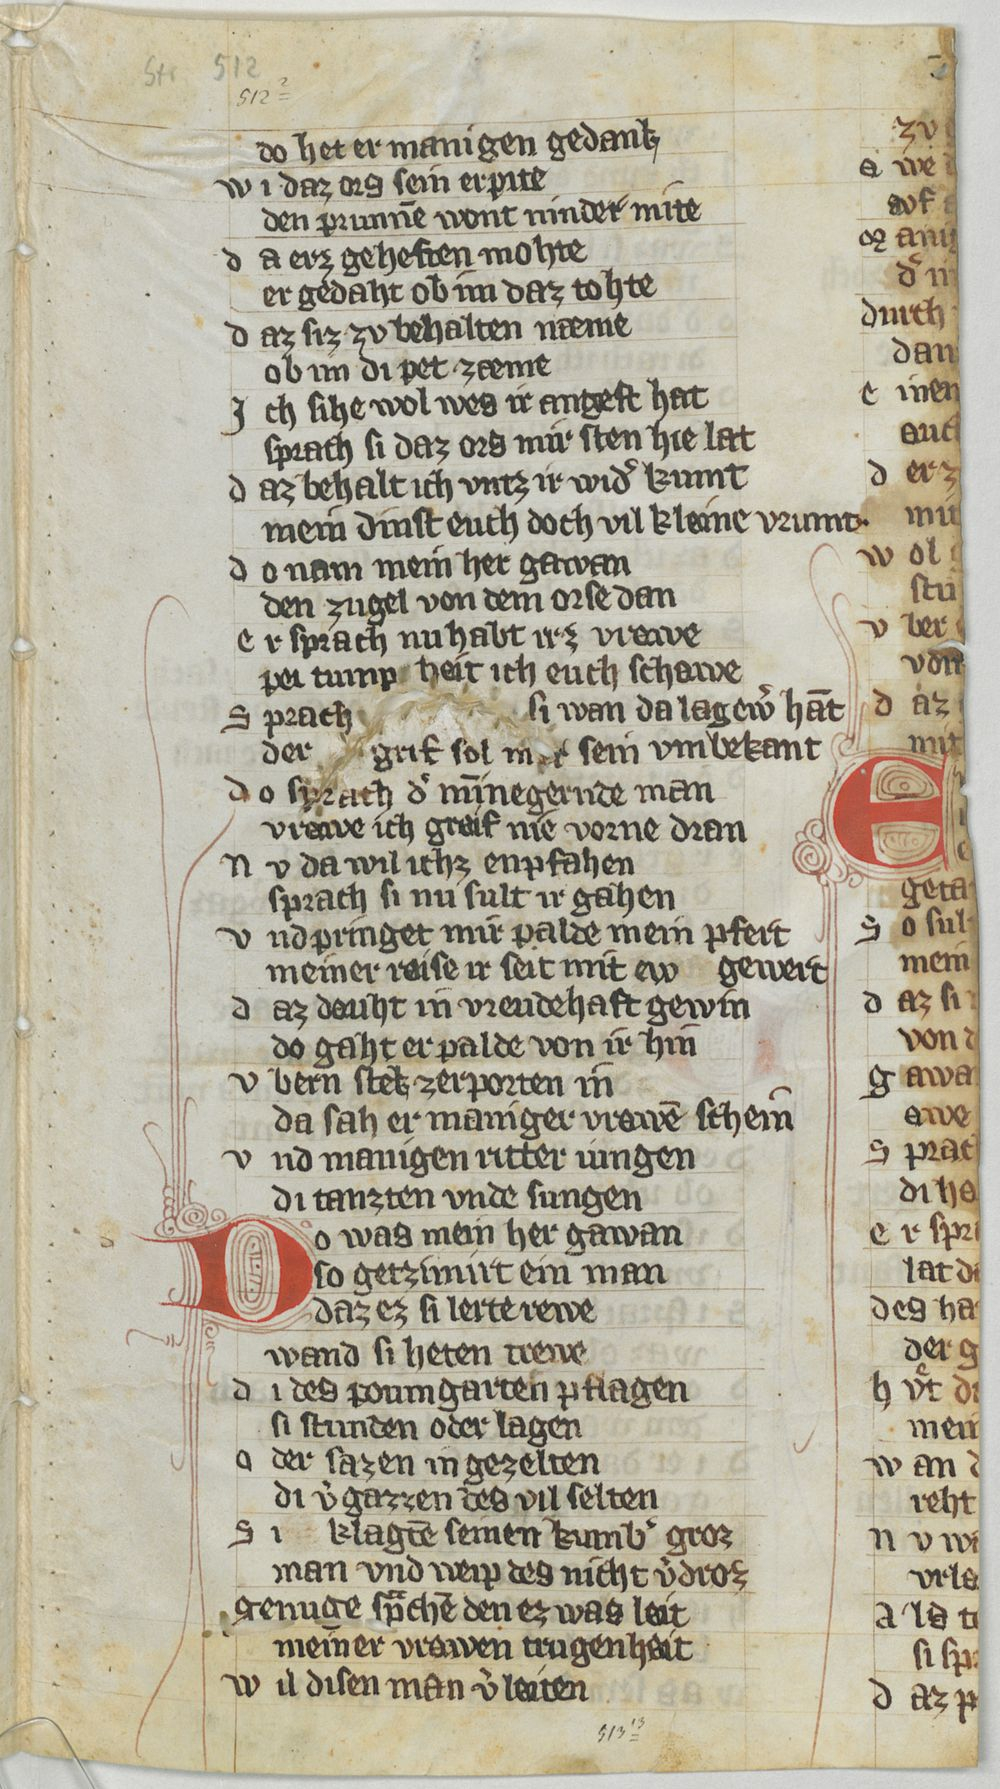 Str 512
512 2
do het er manigen gedank
w i daz ors sein erpite
den prunnē wont ninder mite
d a erz geheften mohte
er gedaht ob im daz tohte
d az sirz zv behalten næme
ob im di pet zæme
J ch sihe wol wes ir angest hat
sprach si daz ors mir sten hie lat
d az behalt ich vntz ir wid͛ kumt
mein dinst euch doch vil kleine vrumt
d o nam mein her gawan
den zugel von dem orse dan
e r sprach nu habt irz vrowe
pei tump heit ich euch schawe
S prach si wan da lag ew͛ hāt
der grif sol mir sein vmbekant
d o sprach d͛ mīnegernde man
vrowe ich greif nie vorne dran
N v da wil ichz enpfahen
sprach si nu sult ir gahen
v nd pringet mir palde mein pfert
meiner reise ir seit mit ew gewert
d az douht in vreudehaft gewin
do gaht er palde von ir hin
v bern stek zer porten in
da sah er maniger vrowē schein
v nd manigen ritter iungen
di tanzten vnde sungen
Do was mein her gawan
so getzimirt ein man
daz ez si lerte rewe
wand si heten trewe
d i des poumgarten pflagen
si stunden oder lagen
o der sazen in gezelten
di v͛gazzen des vil selten
S i klagtē seinen kumb͛ groz
man vnd weip des nicht v͛droz
genuge sprachē den ez was leit
meiner vrowen trugenheit
w il disen man v͛leiten
513 13
zv
a we
avf
or
d͛ in
durch
dan
e inen
auch
d erz
mit
w ol
v ber
von
d az
mit
E
S o sul
mein
d az si
von
g awa
awe
S prach
di
e r spr
lat
des ha
der g
h
mein
w an
reht
N v wi
A ls
si spr
d az p